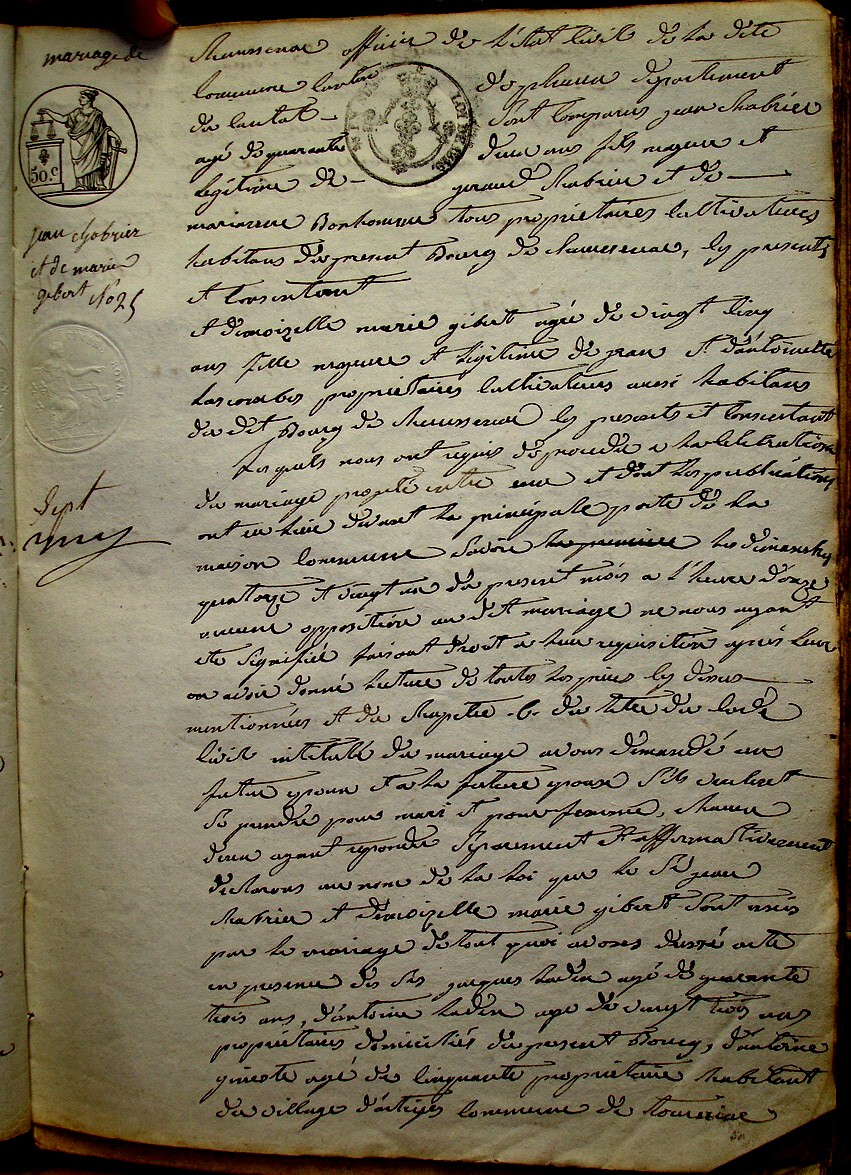 mariage de
jean chabrier
et de marie
gibert No 25
sept
50.c
Chaussenac officier de l'état civil de la dite
commune canton d'epleaux département
du cantal — sont comparus jean chabrier
agé de quarante deux ans fils majeur et
légitime de — geraud chabrier et de —
marianne Bonhomme tous propriétaires cultivateurs
habitans du présent Bourg de chaussenac, les presents
et consentant
et demoizelle marie gibert agée de vingt cinq
ans fille majeure et légitime de jean et d'antoinette
Lascombes propriétaires cultivateurs aussi habitans
du dit Bourg de chaussenac les presents et consentant
Lesquels nous ont requis de procéder a la célébration
du mariage projeté entre eux et dont les publications
ont eu lieu devant la principale porte de la
maison commune savoir la première les dimanches
quatorze et vingt un du present mois a l'heure d'onze
aucune opposition au dit mariage ne nous ayant
été signifié faisant droit a leur requisition après leur
en avoir donné lecture de toutes les pièces cy dessus —
mentionnées et du chapitre 6. du titre du code
civil intitulé du mariage avons demandé au
futur epoux et a la future epouse s'ils veulent
se prendre pour mari et pour femme, chacun
deux ayant repondu séparement et affirmativement
declarons au nom de la loi que le Sr jean
chabrier et demoizelle marie gibert sont unis
par le mariage de tout quoi avons dressé acte
en presence des Srs jacques agé de quarante
trois ans, d'antoine agé de vingt trois ans
propriétaires domiciliés du present Bourg, d'antoine
gineste agé de cinquante propriétaire habitant
du village d'artiges commune de tourniac